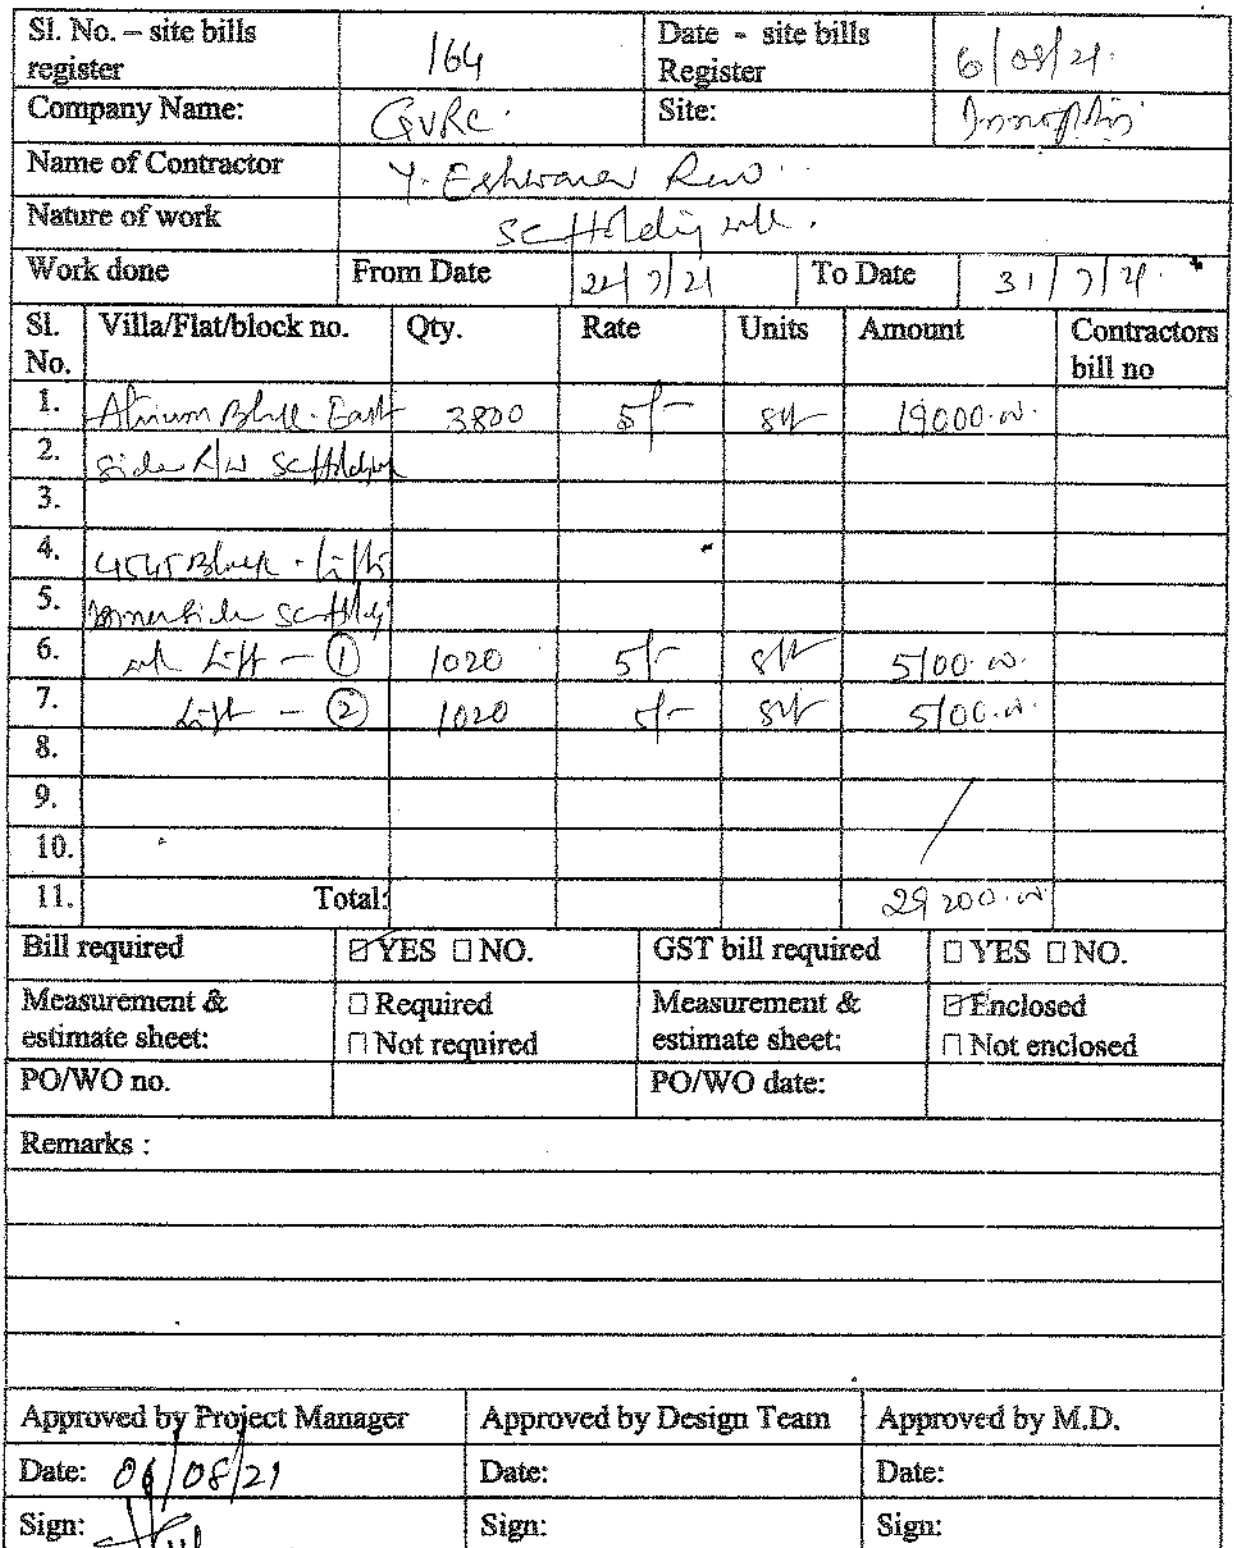 Sl. No. – site bills register 164 Date - site bills Register 6/08/21.
Company Name: GVRC. Site:
Name of Contractor Y. Eshwara Rao
Nature of work Scaffolding work.
Work done From Date 24/7/21 To Date 31/7/21.
Sl. No. Villa/Flat/block no. Qty. Rate Units Amount Contractors bill no
1. Atrium Block - East 3800 5/- sft 19000.00
2. side R/W Scaffolding
3.
4. 4545 Block - Lifts
5. Innerside Scaffoldg
6. Lift - ① 1020 5/- sft 5100.00
7. Lift - ② 1020 5/- sft 5100.00
8.
9.
10.
11. Total: 29200.00
Bill required ☑ YES ☐ NO. GST bill required ☐ YES ☐ NO.
Measurement & estimate sheet: ☐ Required ☐ Not required Measurement & estimate sheet: ☑ Enclosed ☐ Not enclosed
PO/WO no. PO/WO date:
Remarks :
Approved by Project Manager Approved by Design Team Approved by M.D.
Date: 06/08/21 Date: Date:
Sign: Sign: Sign: